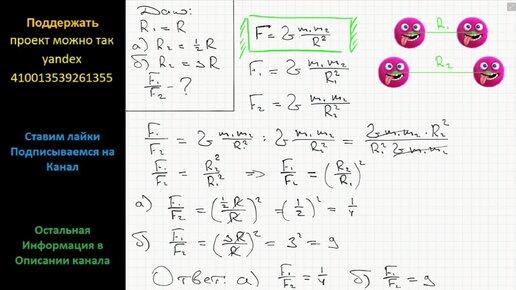 Поддержать
проект можно так
yandex
410013539261355
Ставим лайки
Подписываемся на
Канал
Остальная
Информация в
Описании канала
Дано:
R₁ = R
а) R₂ = ½R
б) R₂ = 3R
F₁/F₂ - ?
F = G m₁m₂/R²
F₁ = G m₁m₂/R₁²
F₂ = G m₁m₂/R₂²
R₁
R₂
F₁/F₂ = G m₁m₂/R₁² : G m₁m₂/R₂² = G m₁m₂ · R₂²/R₁² G m₁m₂
F₁/F₂ = R₂²/R₁² => F₁/F₂ = (R₂/R₁)²
а) F₁/F₂ = (½R/R)² = (1/2)² = 1/4
б) F₁/F₂ = (3R/R)² = 3² = 9
Ответ: а) F₁/F₂ = 1/4 б) F₁/F₂ = 9